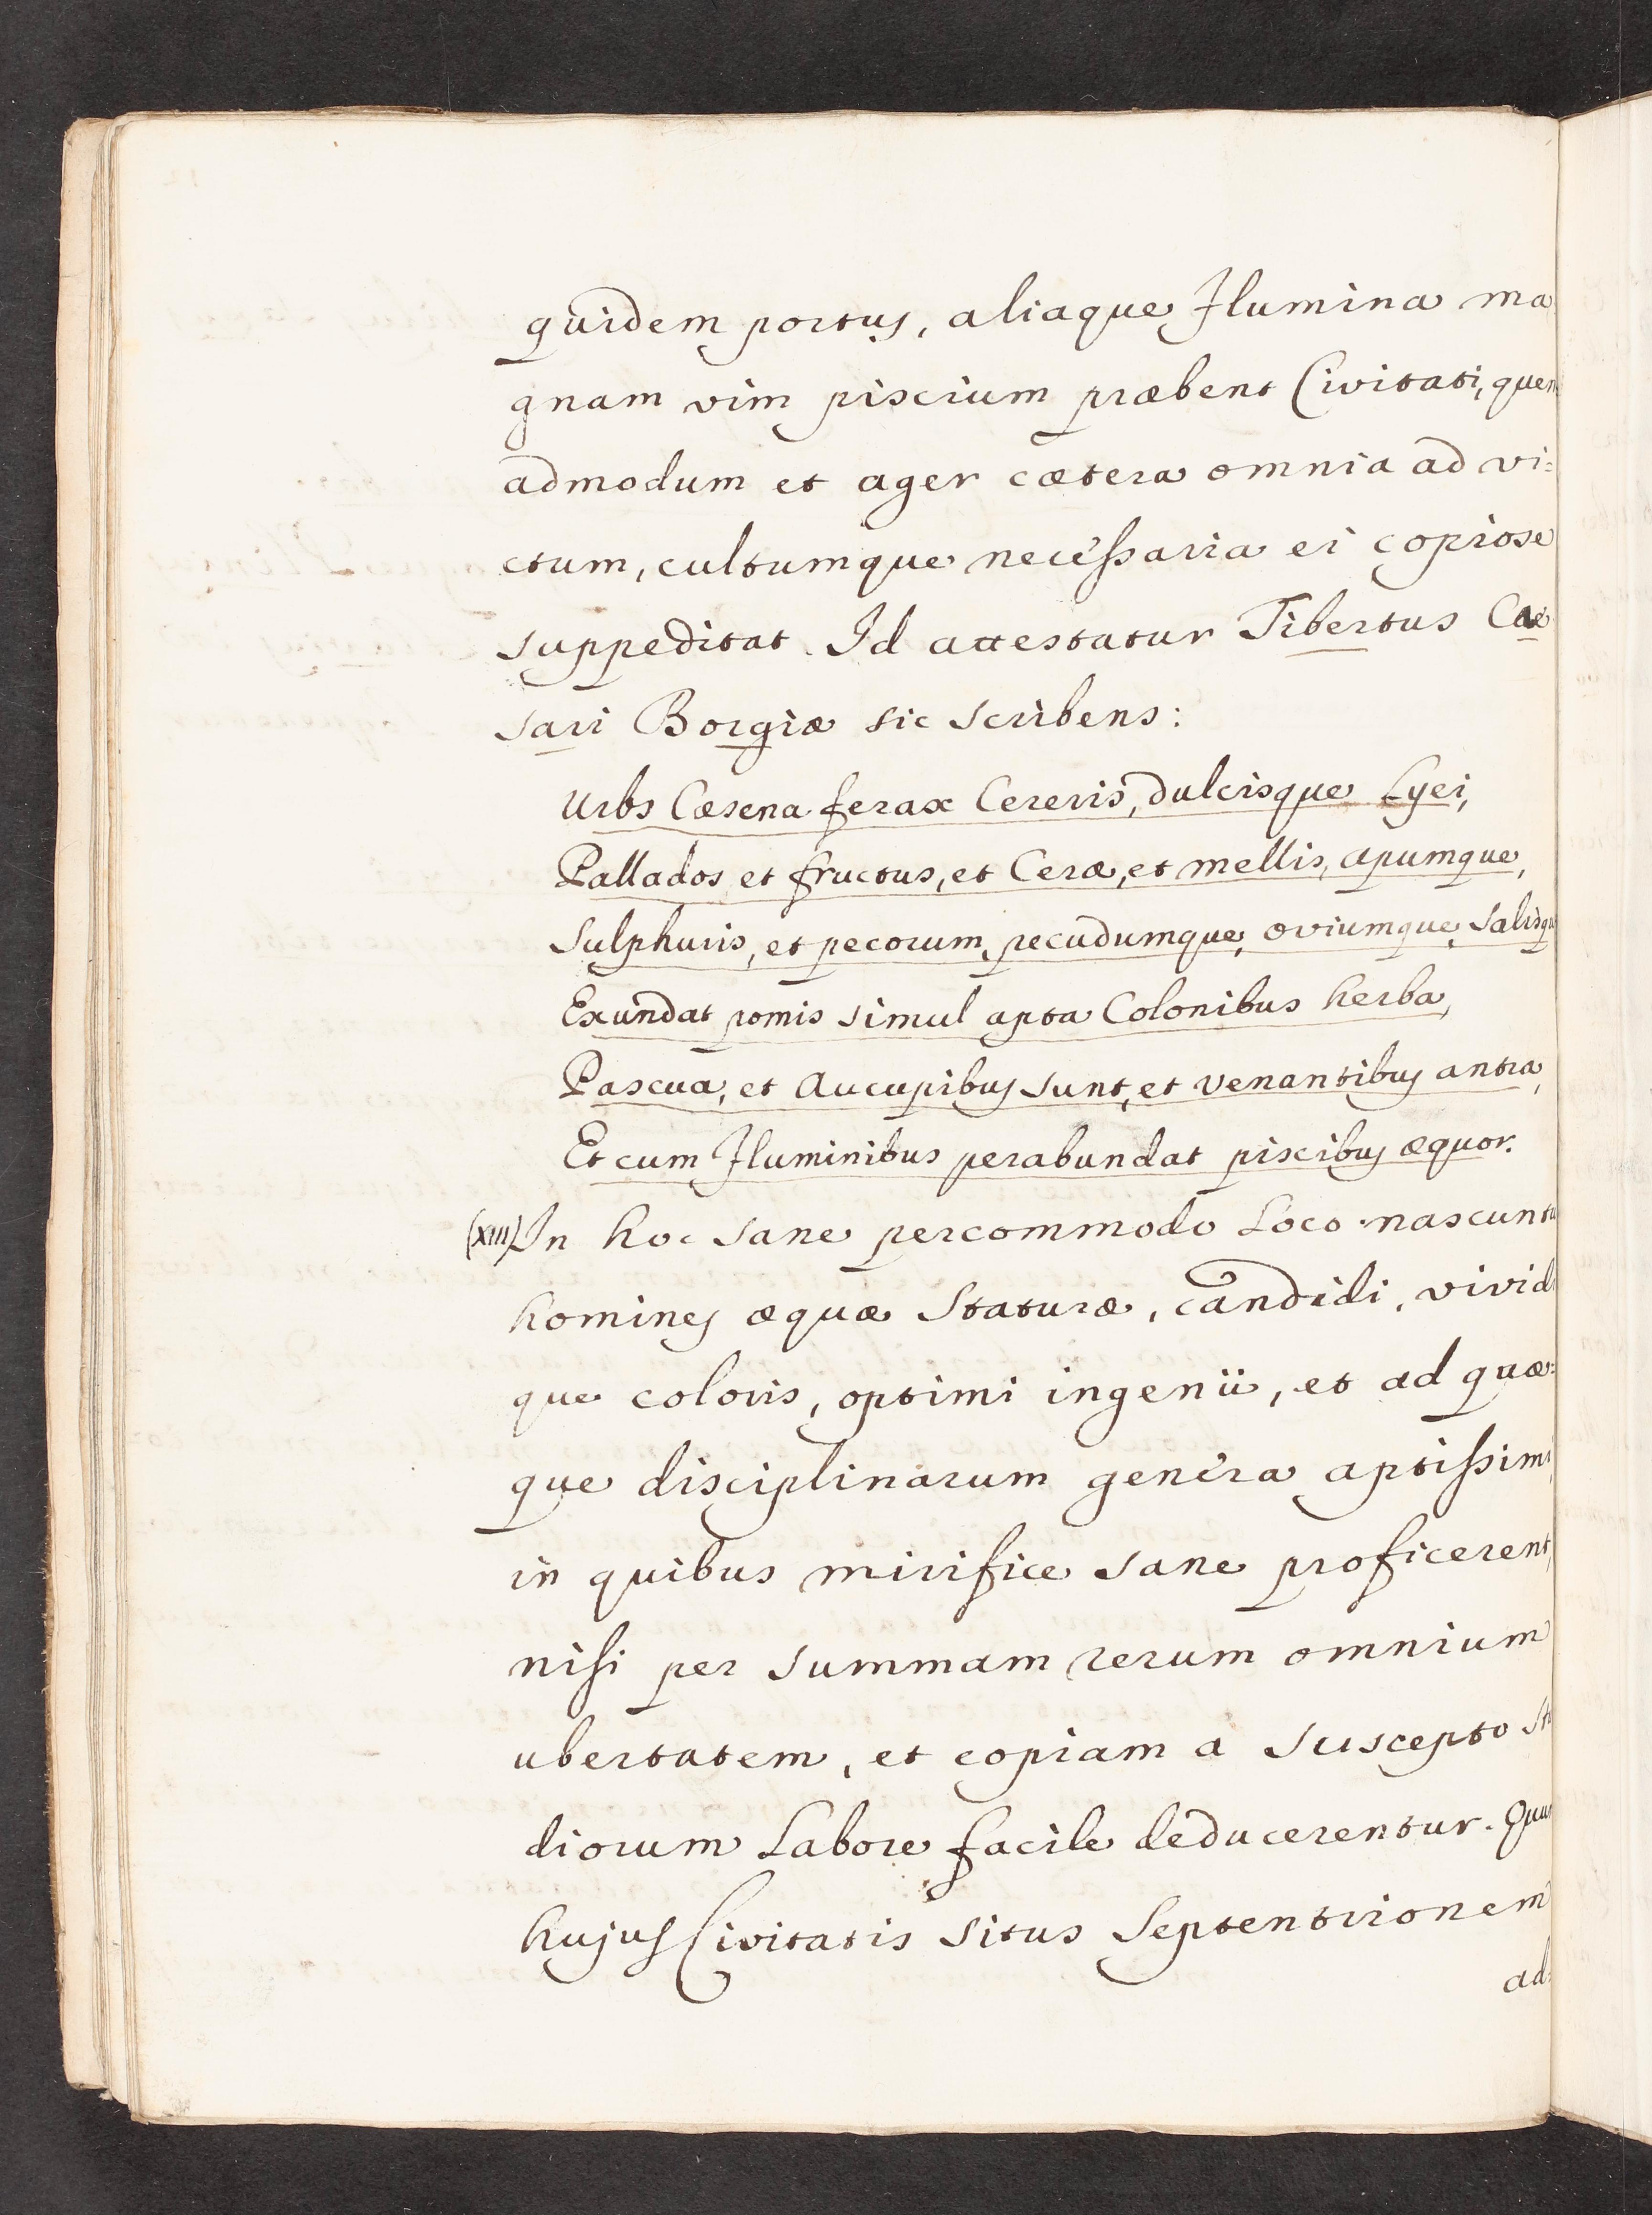 quidem portus, aliaque Flumina ma
gnam vim piscium præbent Civitati, quem
admodum et ager cætera omnia ad vi=
ctum, cultumque necessaria ei copiose
suppeditat. Id attestatur Tibertus Cæ
sari Borgiæ sic scribens:
Urbs Cæsena ferax Cereris, dulcisque Lyei,
Pallados et fructus, et Ceræ, et mellis, apumque,
Sulphuris, et pecorum, pecudumque, oviumque, salisque
Exundat pomis simul apta Colonibus herba,
Pascua, et Aucupibus sunt, et venantibus antra,
Et cum Fluminibus perabundat piscibus æquor.
(XIII) In hoc sane percommodo Loco nascuntu
homines æquæ Staturæ, candidi, vividi
que coloris, optimi ingenii, et ad quæ=
que disciplinarum genera aptissimi,
in quibus mirifice sane proficerent,
nisi per summam rerum omnium
ubertatem, et copiam a suscepto Stu
diorum Labore facile deducerentur.
hujus Civitatis situs Septentrionem
ad=